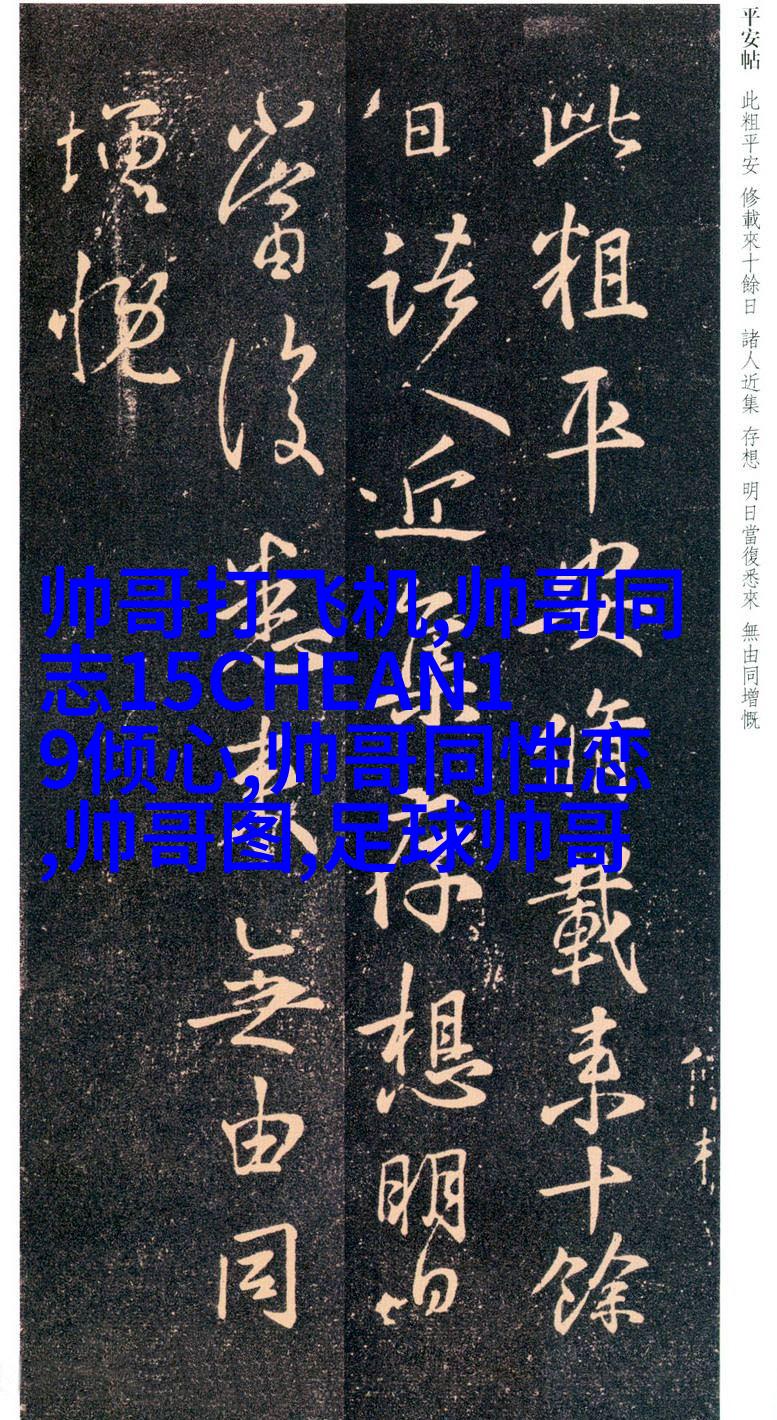 平安帖 此粗平安 修載來十餘日 諸人近集 存想 明日當復悉來 無由同增慨
此粗平安脩載來十餘
日諸人近集存想明日
當復悉來無由同
增慨
帅哥打飞机,帅哥同
志15CHEAN1
9倾心,帅哥同性恋
,帅哥图,足球帅哥